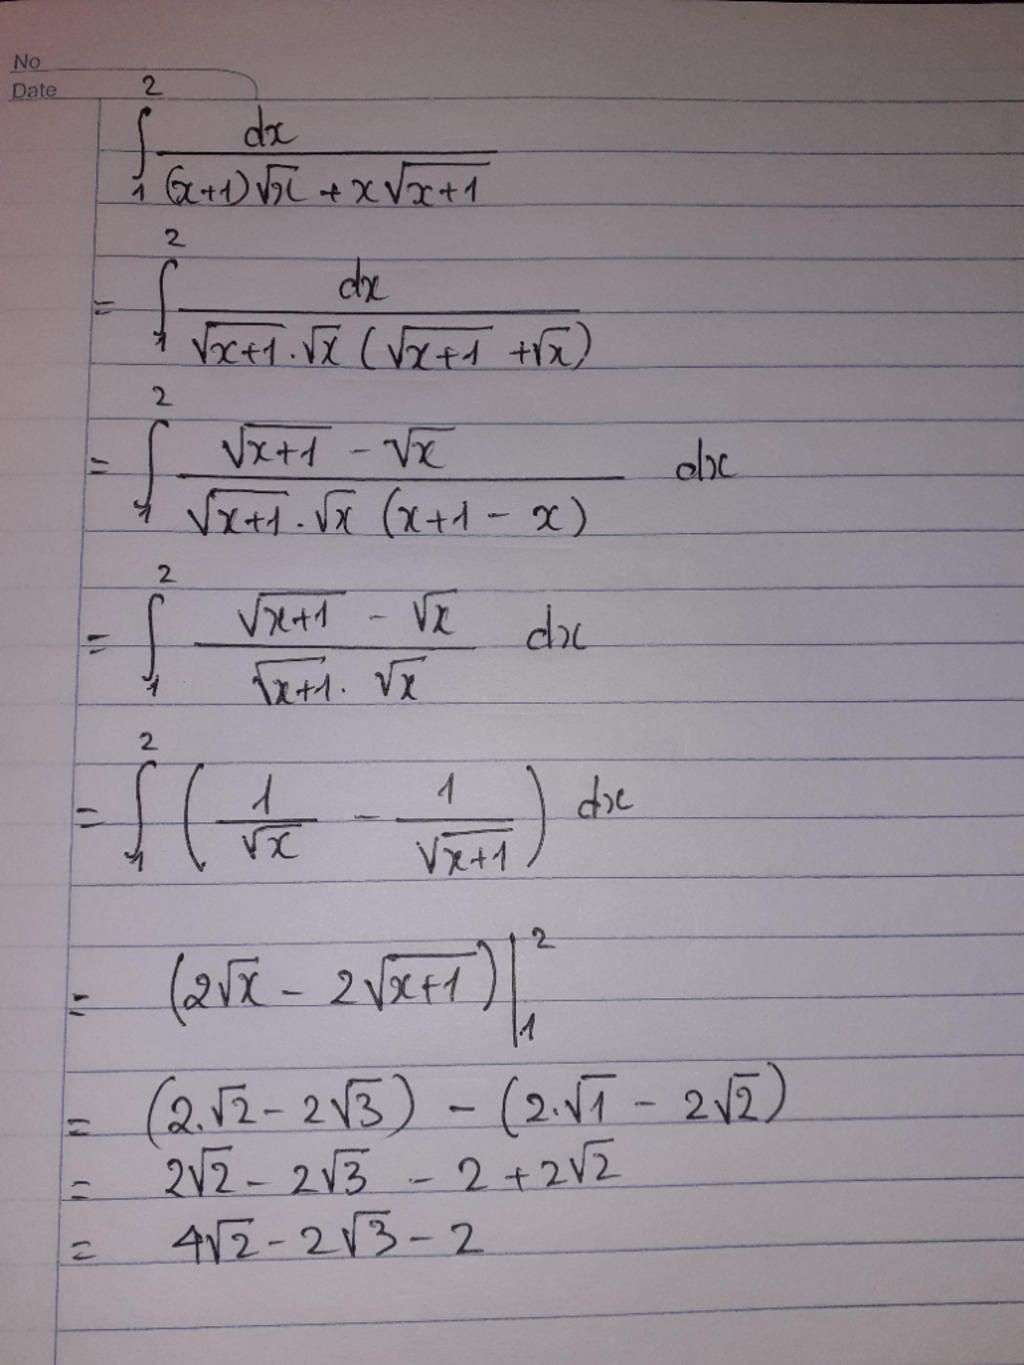 No
Date
∫₁² dx / ((x+1)√x + x√(x+1))
= ∫₁² dx / (√(x+1) . √x (√(x+1) + √x))
= ∫₁² (√(x+1) - √x) / (√(x+1) . √x (x+1 - x)) dx
= ∫₁² (√(x+1) - √x) / (√(x+1) . √x) dx
= ∫₁² (1/√x - 1/√(x+1)) dx
= (2√x - 2√(x+1)) |₁²
= (2.√2 - 2√3) - (2.√1 - 2√2)
= 2√2 - 2√3 - 2 + 2√2
= 4√2 - 2√3 - 2